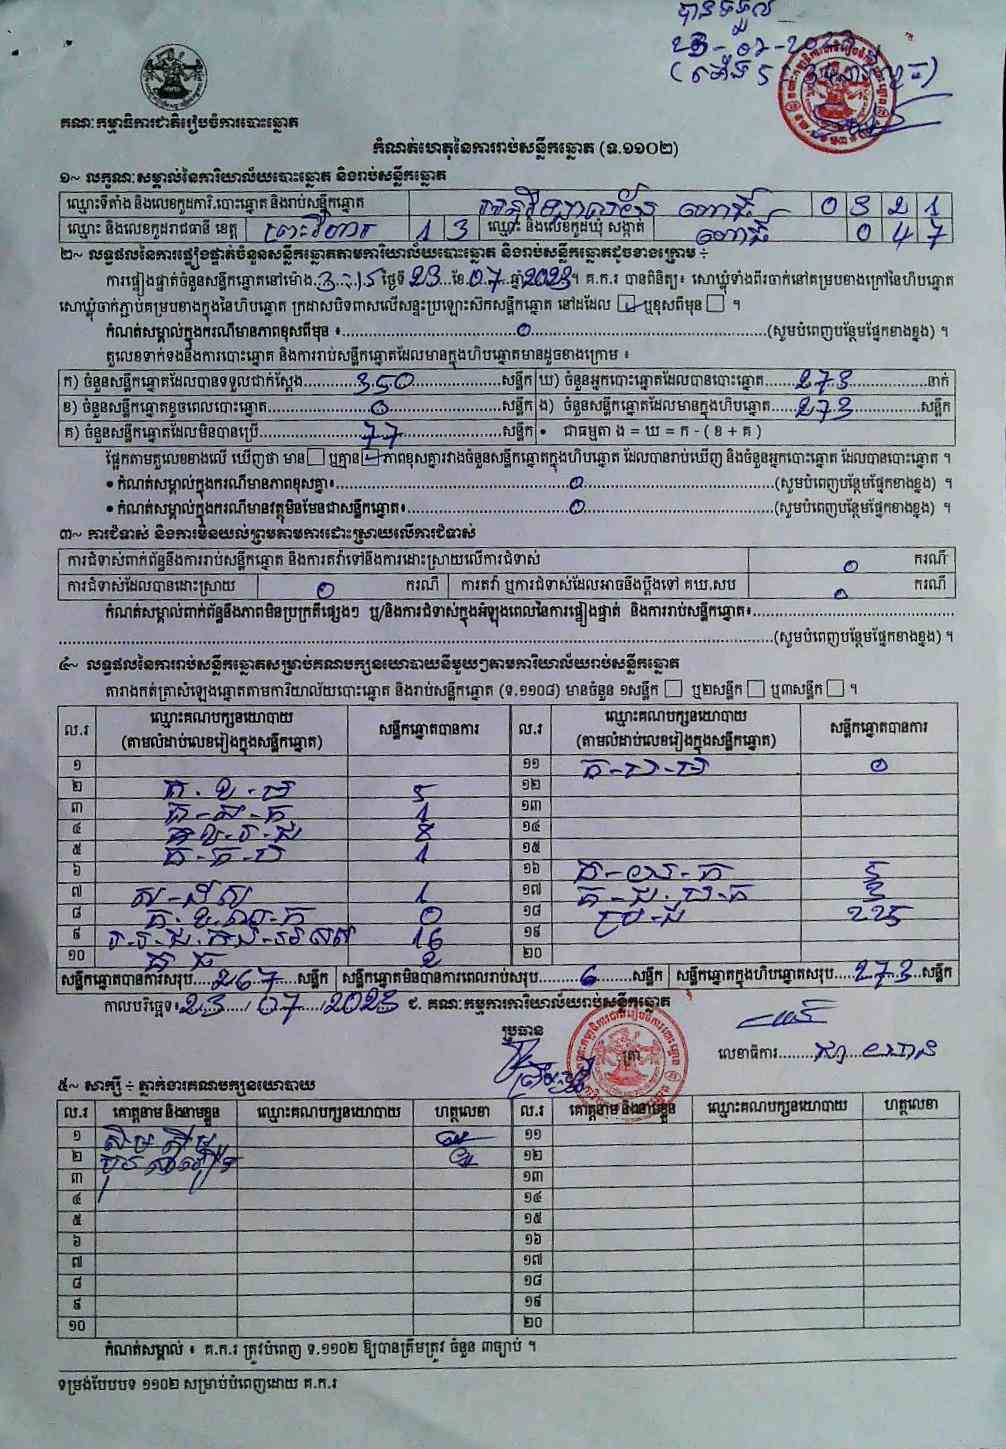 បានទទួល
គណៈកម្មាធិការជាតិរៀបចំការបោះឆ្នោត
កំណត់ហេតុនៃការរាប់សន្លឹកឆ្នោត (ទ.១១០២)
១~ លក្ខណៈសម្គាល់នៃការិយាល័យបោះឆ្នោត និងរាប់សន្លឹកឆ្នោត
ឈ្មោះទីតាំង និងលេខកូដការិ.បោះឆ្នោត និងរាប់សន្លឹកឆ្នោត 0 3 2 1
ឈ្មោះ និងលេខកូដរាជធានី ខេត្ត ព្រះវិហារ 1 3 ឈ្មោះ និងលេខកូដឃុំ សង្កាត់ 0 4 7
២~ លទ្ធផលនៃការផ្ទៀងផ្ទាត់ចំនួនសន្លឹកឆ្នោតតាមការិយាល័យបោះឆ្នោត និងរាប់សន្លឹកឆ្នោតដូចខាងក្រោម ÷
ការផ្ទៀងផ្ទាត់ចំនួនសន្លឹកឆ្នោតនៅម៉ោង 3:15 ថ្ងៃទី 23 ខែ 07 ឆ្នាំ 2023។ គ.ក.រ បានពិនិត្យ៖ សោឃ្លុំទាំងពីរចាក់នៅគម្របខាងក្រៅនៃហិបឆ្នោត
សោឃ្លុំចាក់ភ្ជាប់គម្របខាងក្នុងនៃហិបឆ្នោត ក្រដាសបិទពាសលើសន្ទះប្រឡោះស៊កសន្លឹកឆ្នោត នៅដដែល ☑ ឬខុសពីមុន ☐ ។
កំណត់សម្គាល់ក្នុងករណីមានភាពខុសពីមុន ៖ 0 (សូមបំពេញបន្ថែមផ្នែកខាងខ្នង) ។
តួលេខទាក់ទងនឹងការបោះឆ្នោត និងការរាប់សន្លឹកឆ្នោតដែលមានក្នុងហិបឆ្នោតមានដូចខាងក្រោម ៖
ក) ចំនួនសន្លឹកឆ្នោតដែលបានទទួលជាក់ស្តែង 350 សន្លឹក ឃ) ចំនួនអ្នកបោះឆ្នោតដែលបានបោះឆ្នោត 273 នាក់
ខ) ចំនួនសន្លឹកឆ្នោតខូចពេលបោះឆ្នោត 0 សន្លឹក ង) ចំនួនសន្លឹកឆ្នោតដែលមានក្នុងហិបឆ្នោត 273 សន្លឹក
គ) ចំនួនសន្លឹកឆ្នោតដែលមិនបានប្រើ 77 សន្លឹក • ជាធម្មតា ង = ឃ = ក - ( ខ + គ )
ផ្អែកតាមតួលេខខាងលើ ឃើញថា មាន ☐ ឬគ្មាន ☑ ភាពខុសគ្នារវាងចំនួនសន្លឹកឆ្នោតក្នុងហិបឆ្នោត ដែលបានរាប់ឃើញ និងចំនួនអ្នកបោះឆ្នោត ដែលបានបោះឆ្នោត ។
• កំណត់សម្គាល់ក្នុងករណីមានភាពខុសគ្នា៖ 0 (សូមបំពេញបន្ថែមផ្នែកខាងខ្នង) ។
• កំណត់សម្គាល់ក្នុងករណីមានវត្ថុមិនមែនជាសន្លឹកឆ្នោត៖ 0 (សូមបំពេញបន្ថែមផ្នែកខាងខ្នង) ។
៣~ ការជំទាស់ និងការមិនយល់ព្រមតាមការដោះស្រាយលើការជំទាស់
ការជំទាស់ពាក់ព័ន្ធនឹងការរាប់សន្លឹកឆ្នោត និងការតវ៉ាទៅនឹងការដោះស្រាយលើការជំទាស់ 0 ករណី
ការជំទាស់ដែលបានដោះស្រាយ 0 ករណី ការតវ៉ា ឬការជំទាស់ដែលអាចនឹងប្តឹងទៅ គឃ.សប 0 ករណី
កំណត់សម្គាល់ពាក់ព័ន្ធនឹងភាពមិនប្រក្រតីផ្សេងៗ ឬ/និងការជំទាស់ក្នុងអំឡុងពេលនៃការផ្ទៀងផ្ទាត់ និងការរាប់សន្លឹកឆ្នោត៖
(សូមបំពេញបន្ថែមផ្នែកខាងខ្នង) ។
៤~ លទ្ធផលនៃការរាប់សន្លឹកឆ្នោតសម្រាប់គណបក្សនយោបាយនីមួយៗតាមការិយាល័យរាប់សន្លឹកឆ្នោត
តារាងកត់ត្រាសំឡេងឆ្នោតតាមការិយាល័យបោះឆ្នោត និងរាប់សន្លឹកឆ្នោត (ទ.១១០៨) មានចំនួន ១សន្លឹក ☐ ឬ២សន្លឹក ☐ ឬ៣សន្លឹក ☐ ។
ល.រ ឈ្មោះគណបក្សនយោបាយ (តាមលំដាប់លេខរៀងក្នុងសន្លឹកឆ្នោត) សន្លឹកឆ្នោតបានការ ល.រ ឈ្មោះគណបក្សនយោបាយ (តាមលំដាប់លេខរៀងក្នុងសន្លឹកឆ្នោត) សន្លឹកឆ្នោតបានការ
១ ១១ 0
២ 5 ១២
៣ 1 ១៣
៤ 8 ១៤
៥ 1 ១៥
៦ ១៦ 5
៧ 1 ១៧ 3
៨ 0 ១៨ 225
៩ 16 ១៩
១០ 2 ២០
សន្លឹកឆ្នោតបានការសរុប 267 សន្លឹក សន្លឹកឆ្នោតមិនបានការពេលរាប់សរុប 6 សន្លឹក សន្លឹកឆ្នោតក្នុងហិបឆ្នោតសរុប 273 សន្លឹក
កាលបរិច្ឆេទ៖ 23/07/2023 ជ. គណៈកម្មការការិយាល័យរាប់សន្លឹកឆ្នោត
ប្រធាន
ត្រា
លេខាធិការ
៥~ សាក្សី ÷ ភ្នាក់ងារគណបក្សនយោបាយ
ល.រ គោត្តនាម និងនាមខ្លួន ឈ្មោះគណបក្សនយោបាយ ហត្ថលេខា ល.រ គោត្តនាម និងនាមខ្លួន ឈ្មោះគណបក្សនយោបាយ ហត្ថលេខា
១ ១១
២ ១២
៣ ១៣
៤ ១៤
៥ ១៥
៦ ១៦
៧ ១៧
៨ ១៨
៩ ១៩
១០ ២០
កំណត់សម្គាល់ ៖ គ.ក.រ ត្រូវបំពេញ ទ.១១០២ ឱ្យបានត្រឹមត្រូវ ចំនួន ៣ច្បាប់ ។
ទម្រង់បែបបទ ១១០២ សម្រាប់បំពេញដោយ គ.ក.រ